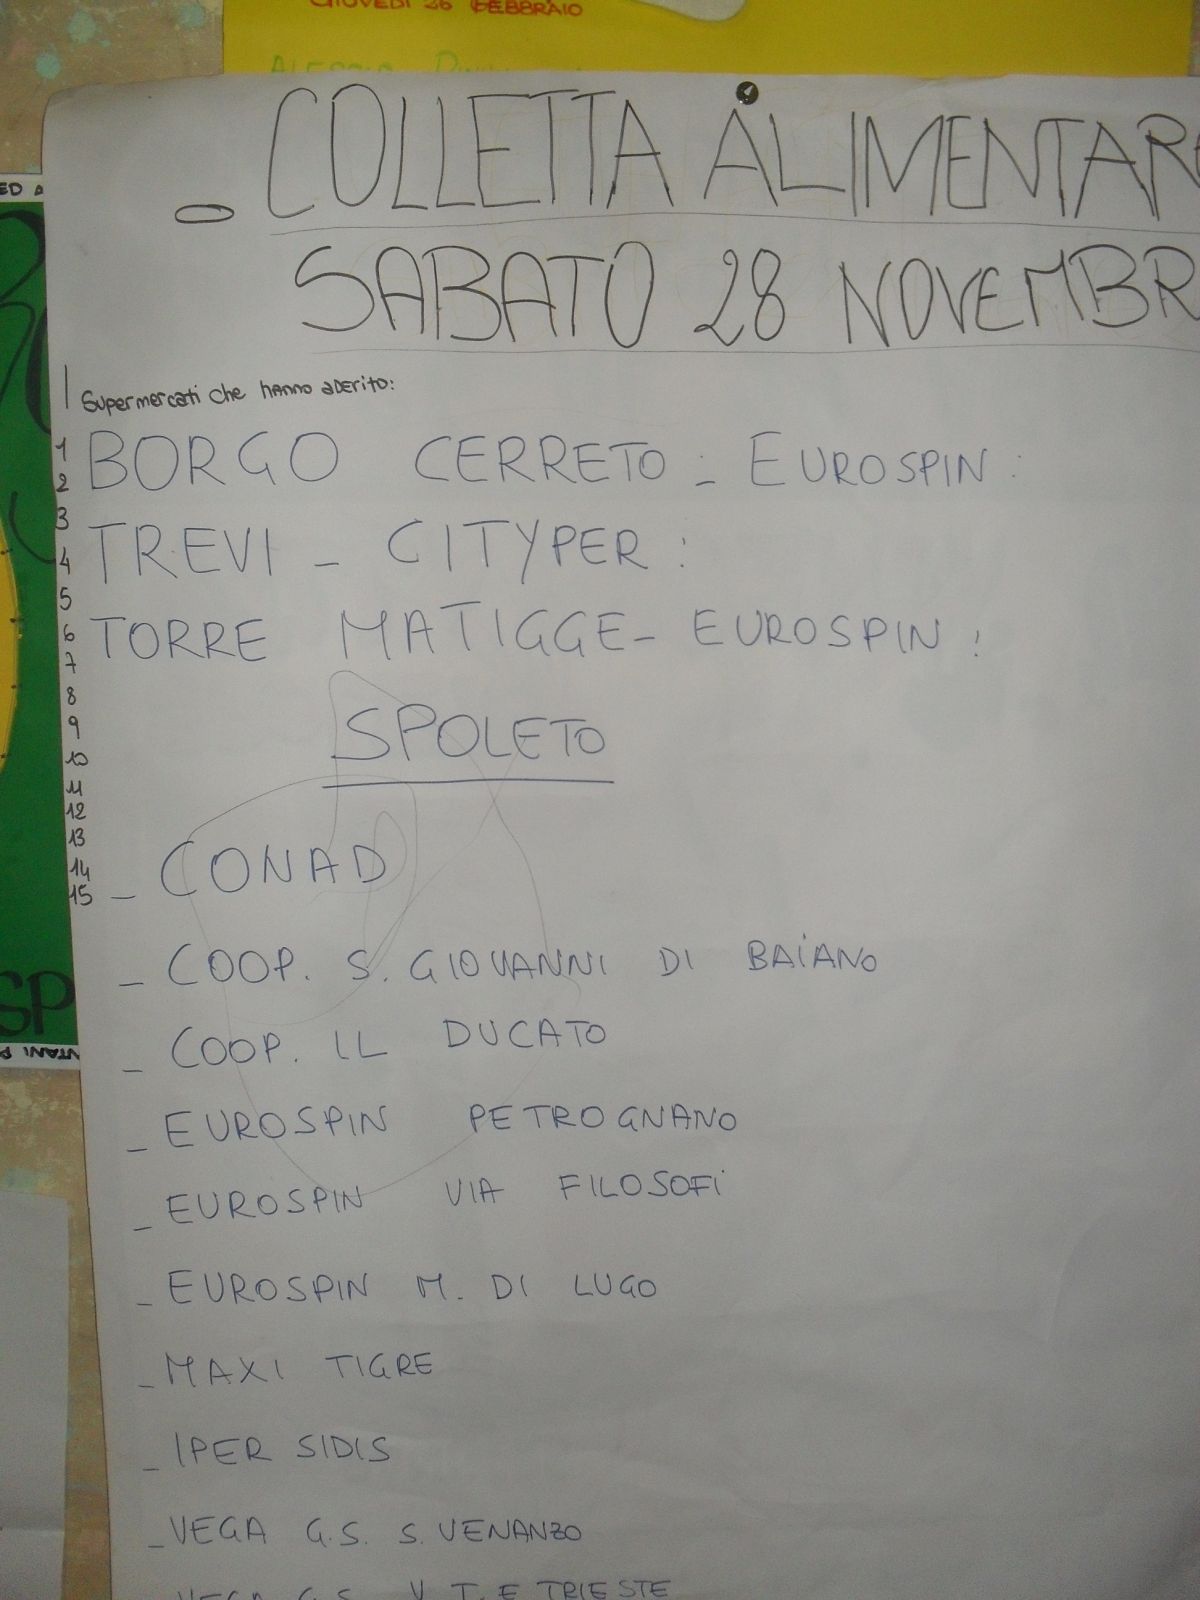 GIOVEDÌ 26 FEBBRAIO
- COLLETTA ALIMENTARE
SABATO 28 NOVEMBR
Supermercati che hanno aderito:
1 BORGO CERRETO - EUROSPIN:
2
3 TREVI - CITYPER:
4
5
6 TORRE MATIGGE - EUROSPIN:
7
8
9 SPOLETO
10
11
12
13
14
15
- CONAD
- COOP. S. GIOVANNI DI BAIANO
- COOP. IL DUCATO
- EUROSPIN PETROGNANO
- EUROSPIN VIA FILOSOFI
- EUROSPIN M. DI LUGO
- MAXI TIGRE
- IPER SIDIS
- VEGA G.S. S. VENANZO
VEGA G.S. V. T. E TRIESTE
SP